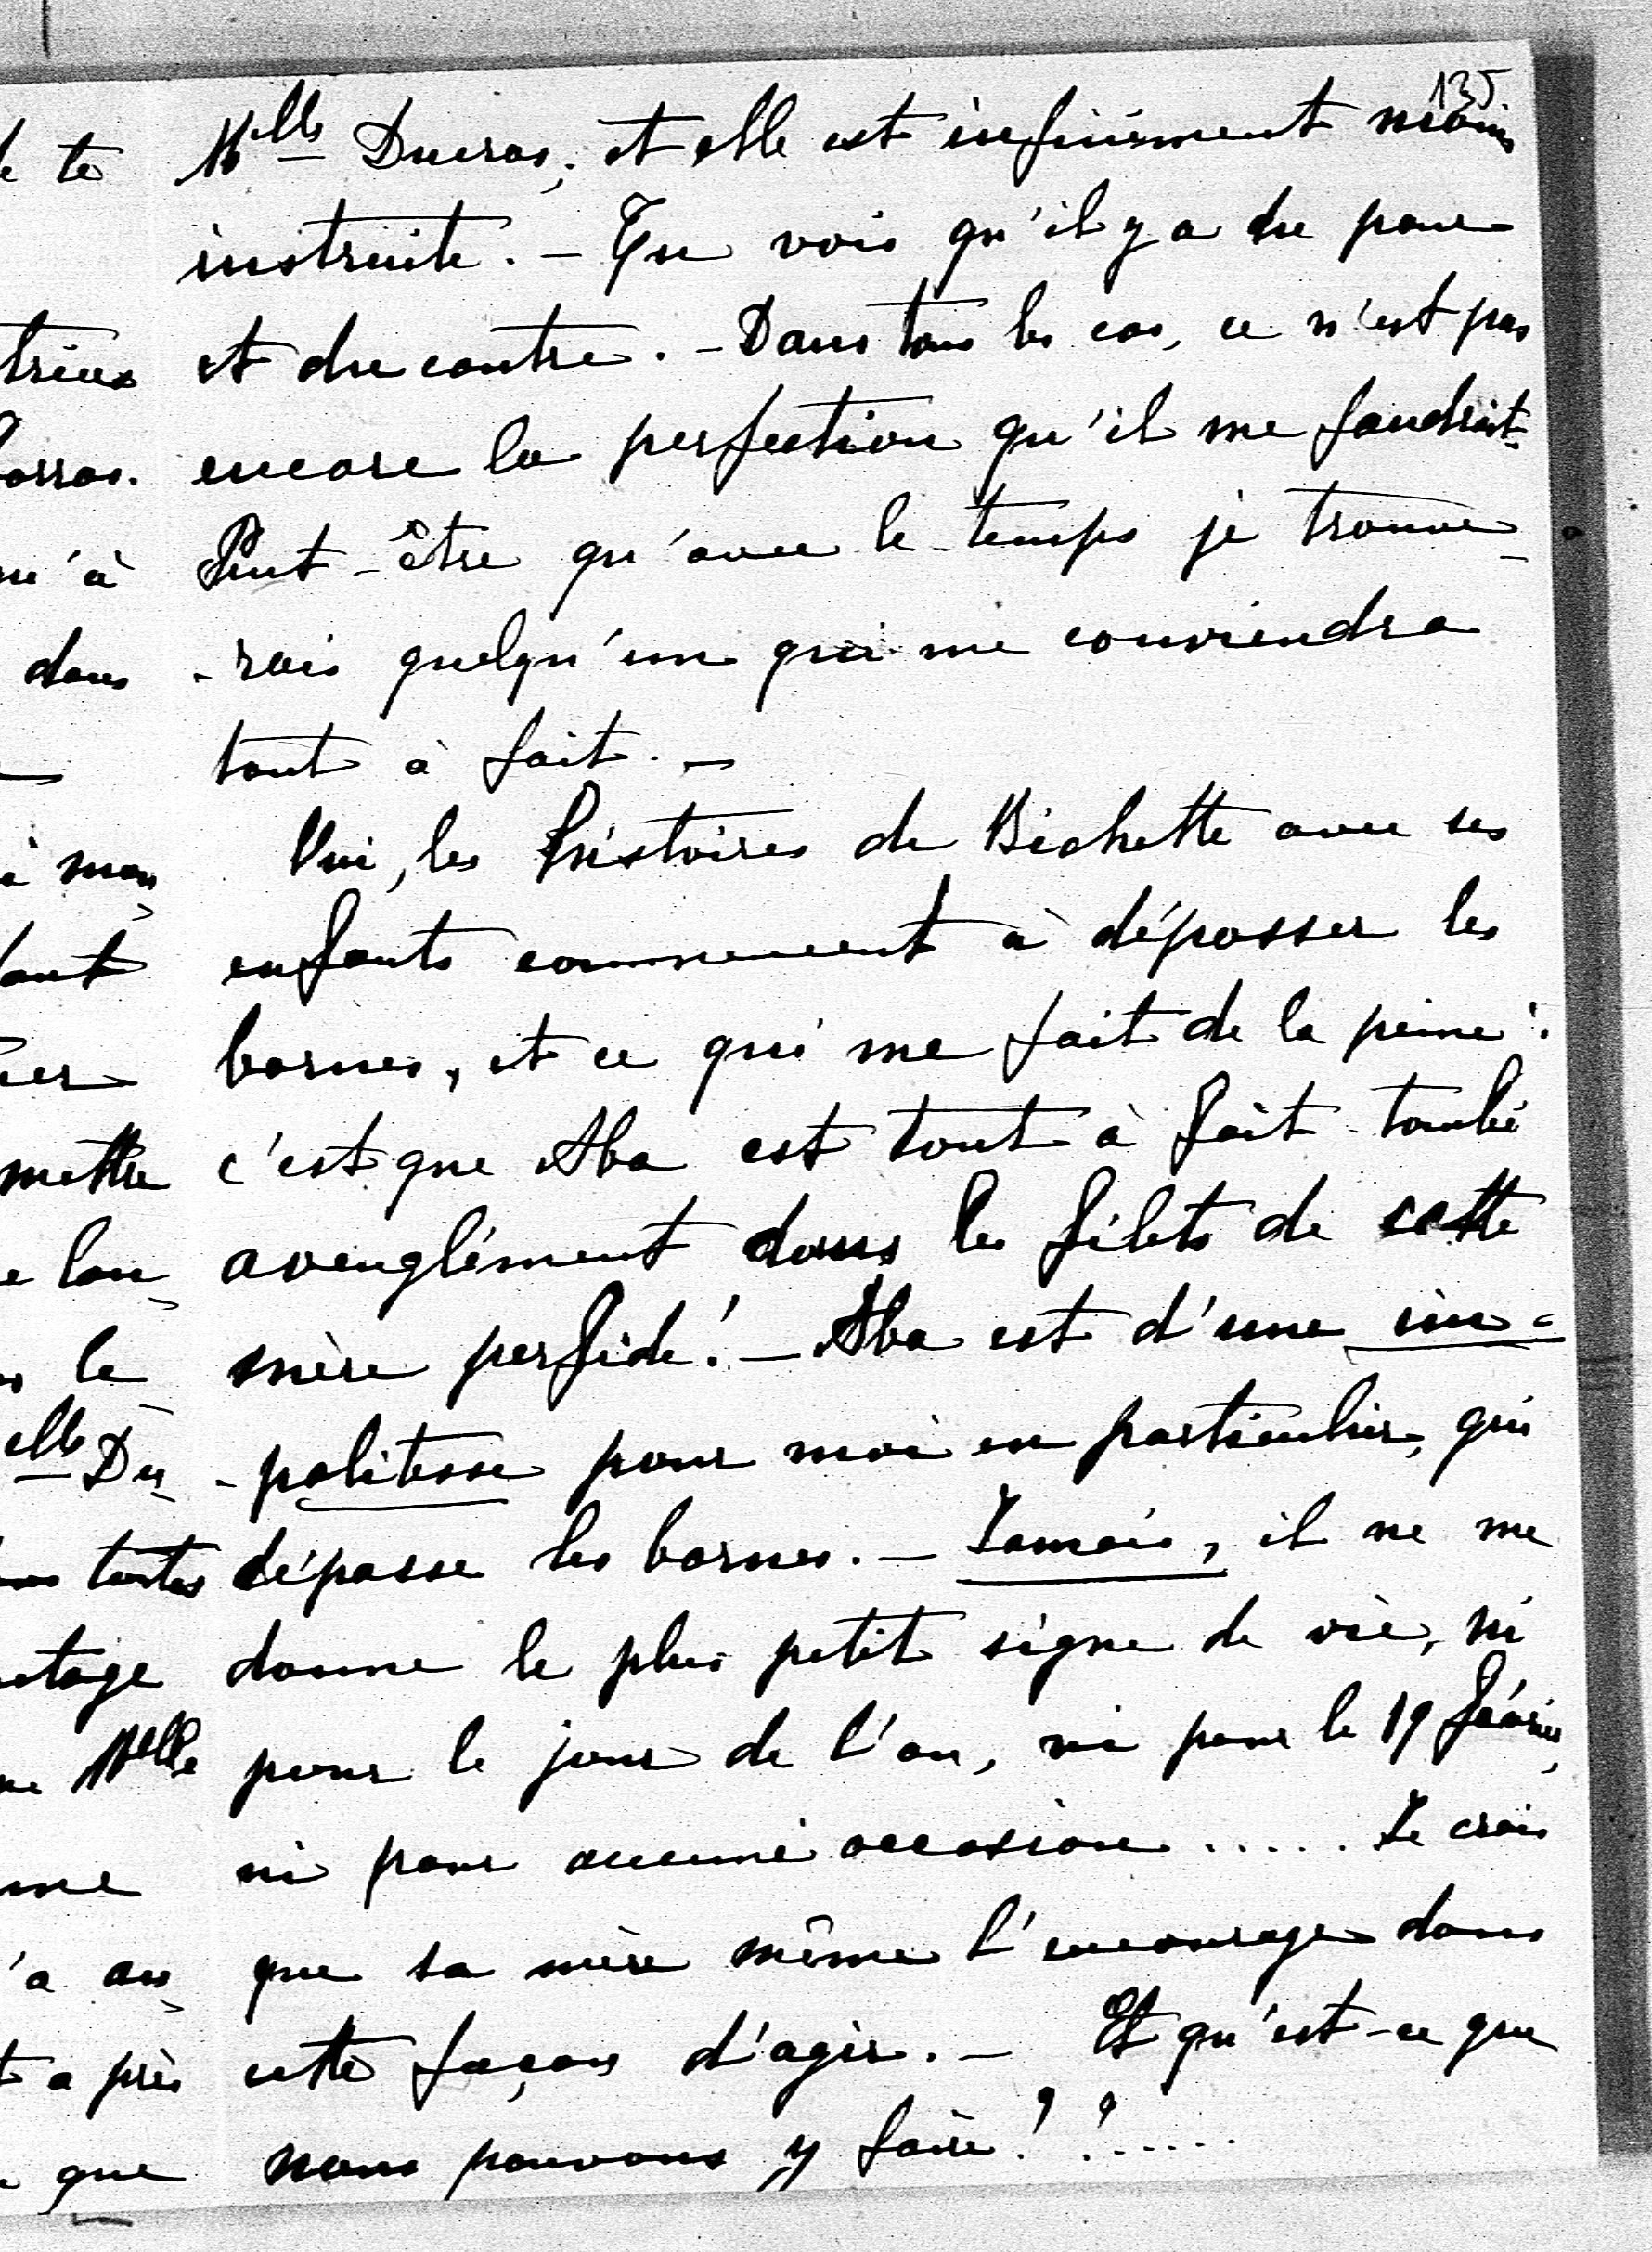 135.
Melle Ducros; et elle est infiniment moins
instruite. – Tu vois qu'il y a du pour
et du contre. – Dans tous les cas, ce n'est pas
encore la perfection qu'il me faudrait.
Peut-être qu'avec le temps je trouve-
-rais quelqu'un qui me conviendra
tout à fait. –
Oui, les histoires de Bichette avec ses
enfants commencent à dépasser les
bornes, et ce qui me fait de la peine :
c'est que Aba est tout à fait tombé
aveuglément dans les filets de cette
mère perfide! – Aba est d'une im-
-politesse pour moi en particulier, qui
dépasse les bornes. – Jamais, il ne me
donne le plus petit signe de vie, ni
pour le jour de l'an, ni pour le 19 février,
ni pour aucune occasion ..... Je crois
que sa mère même l'encourage dans
cette façon d'agir. – Et qu'est-ce que
nous pouvons y faire? ?.....